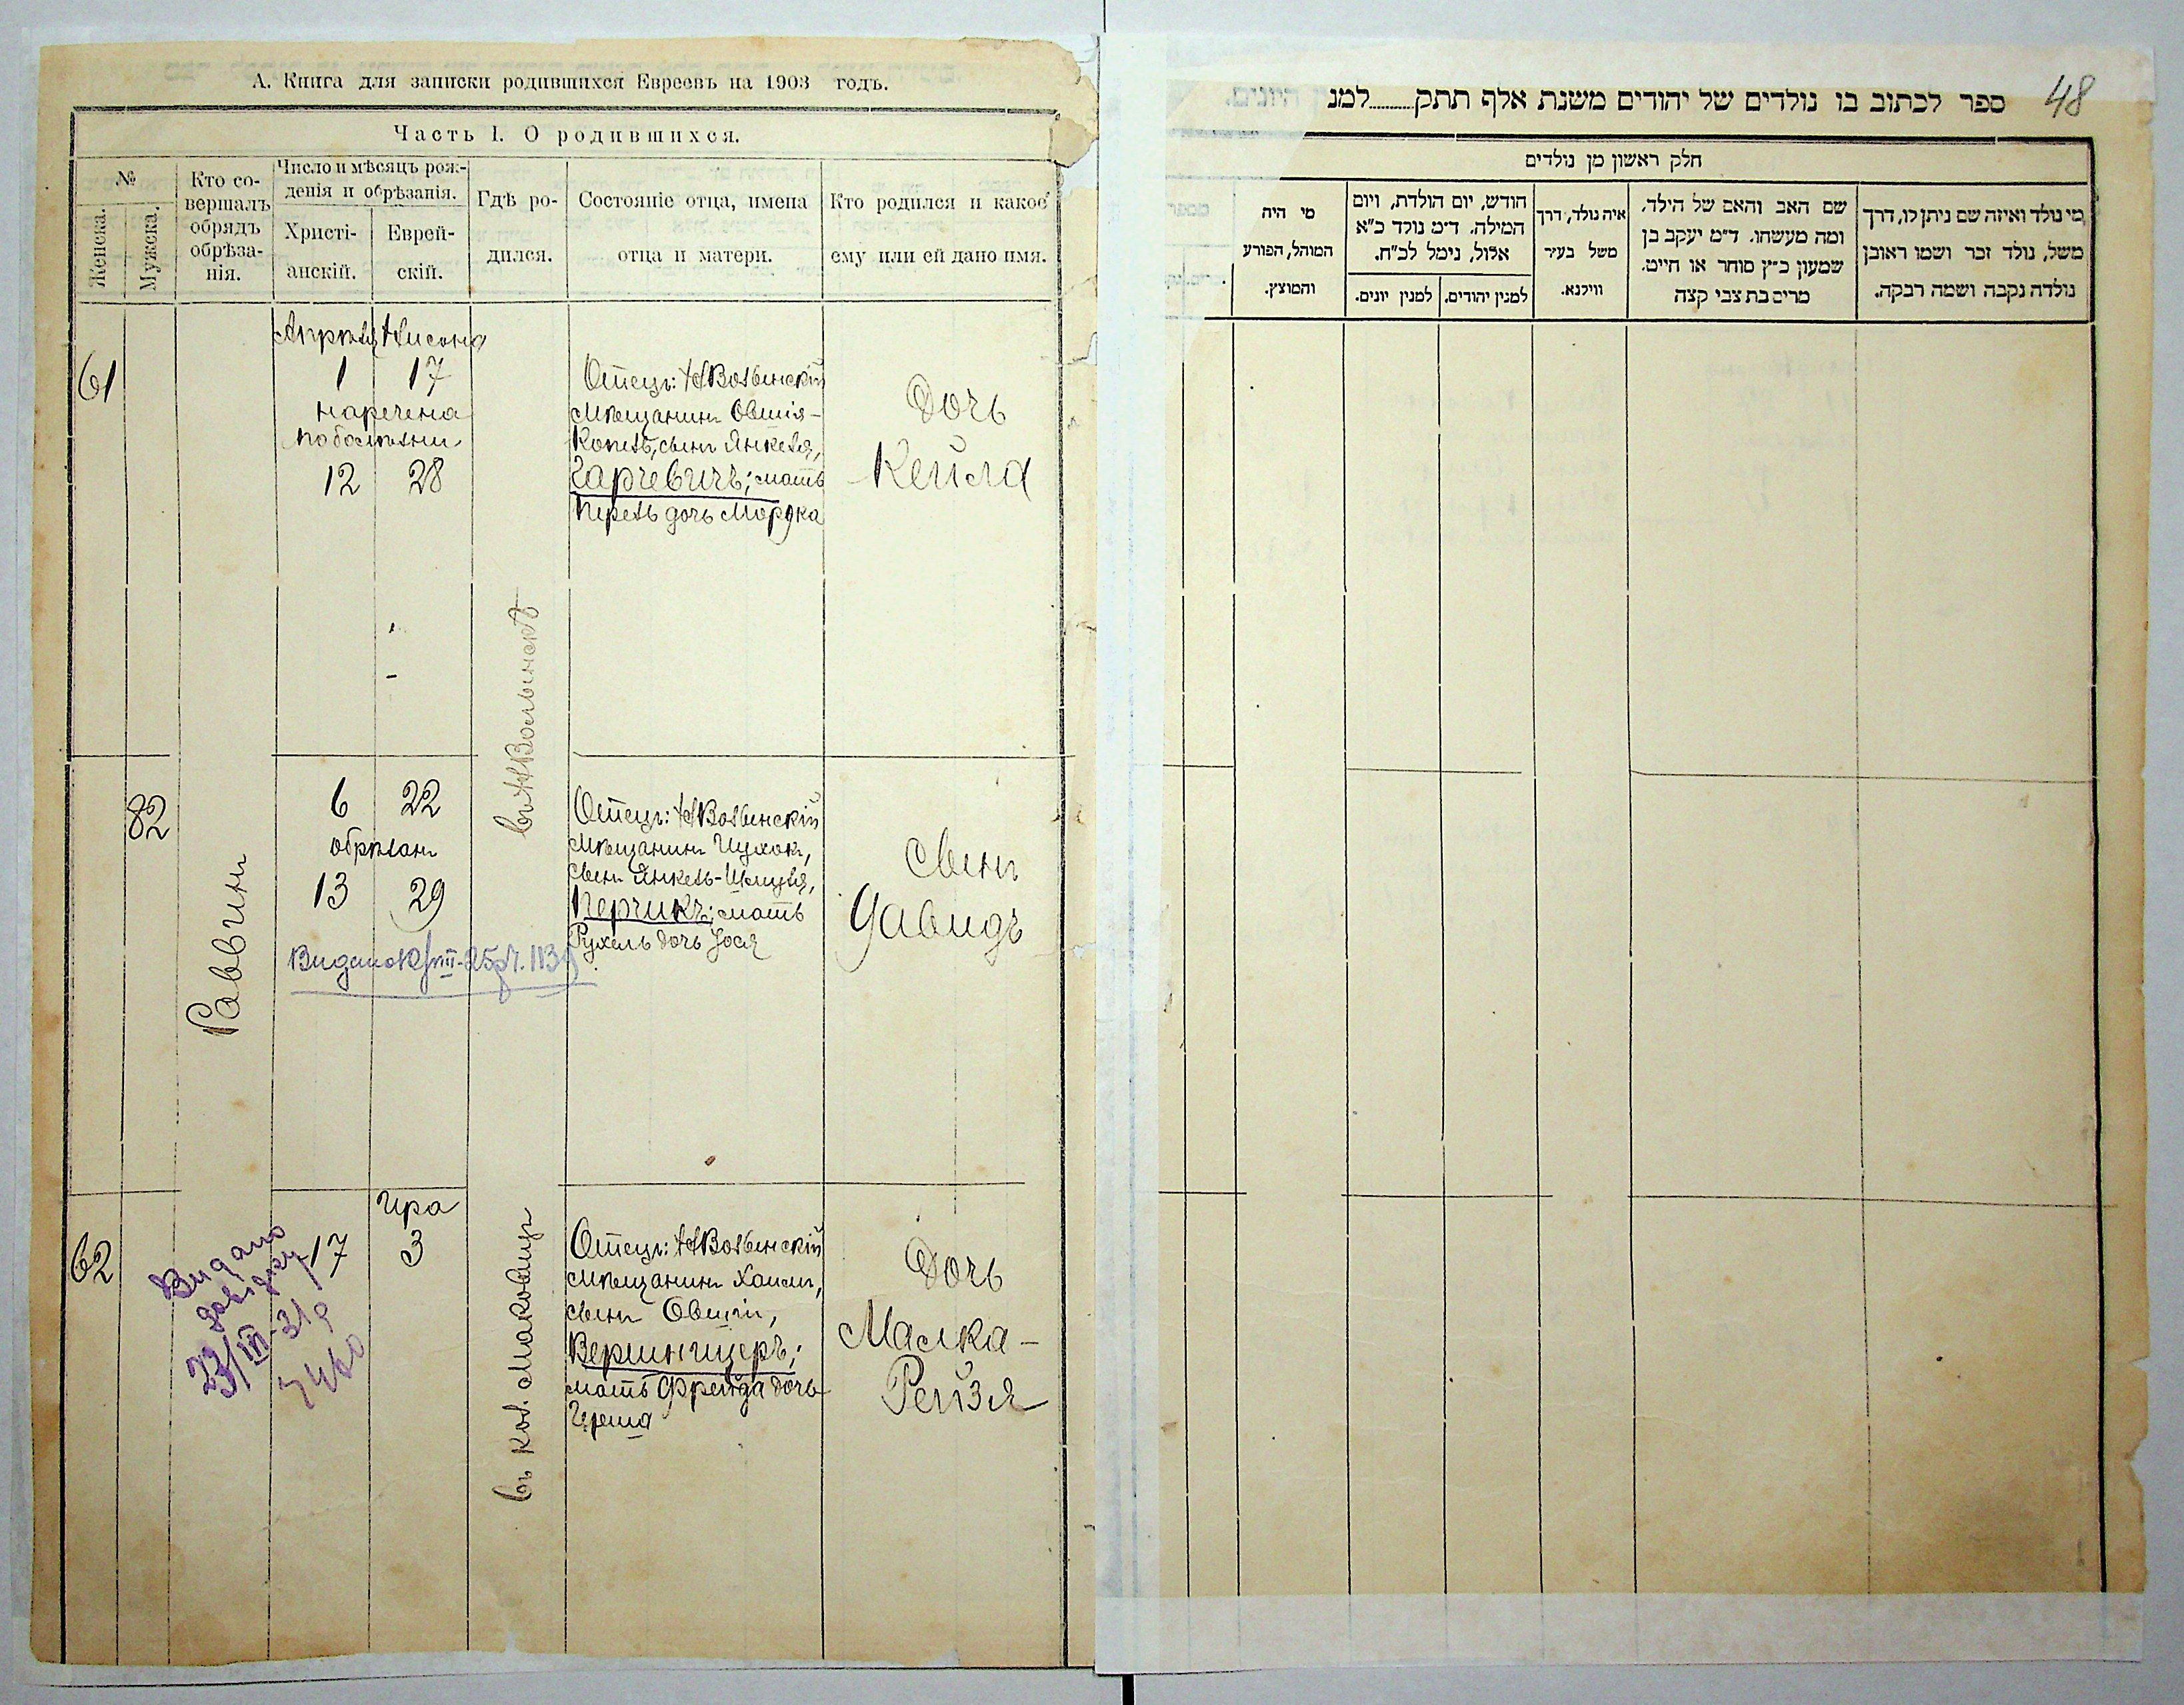 А. Книга для записки родившихся Евреевъ на 1903 годъ.
Часть I. О родившихся.
№
Женска.
Мужска.
Кто со-
вершалъ
обрядъ
обрѣза-
нія.
Число и мѣсяцъ рож-
денія и обрѣзанія.
Христі-
анскій.
Еврей-
скій.
Гдѣ ро-
дился.
Состояніе отца, имена
отца и матери.
Кто родился и какое
ему или ей дано имя.
61
Апрѣля Нисона
1 17
наречена
12 28
Отецъ: НВолынскій
мѣщанинъ Овшія-
Копель, сынъ Янкеля,
Гарчевичъ; мать
Перель дочь Мордка
Дочь
Кейла
въ НВолынскѣ
82
Раввинъ
6 22
обрѣзанъ
13 29
Видано
Отецъ: НВолынскій
мѣщанинъ Ицхокъ,
сынъ Янкель-Шмуля,
Перчикъ; мать
Рухель дочь Іося
Сынъ
Давидъ
62
Ира
17 3
Видано
23/VIII-31
въ кол. Маковицъ
Отецъ: НВолынскій
мѣщанинъ Хаимъ,
сынъ Овшіи,
мать Фрейда дочь
Герша
Дочь
Малка-
Рейзя
48
ספר לכתוב בו נולדים של יהודים משנת אלף תתק........למנ היונים.
חלק ראשון מן נולדים
מי נולד ואיזה שם ניתן לו, דרך
משל, נולד זכר ושמו ראובן
נולדה נקבה ושמה רבקה.
שם האב והאם של הילד.
ומה מעשהו. ד״מ יעקב בן
שמעון כ״ץ סוחר או חייט.
מרים בת צבי קצה
איה נולד, דרך
משל בעיר
ווילנא.
חודש, יום הולדת, ויום
המילה. ד״מ נולד כ״א
אלול, נימל לכ״ח.
למנין יהודים.
למנין יונים.
מי היה
המוהל, הפורע
והמוצץ.